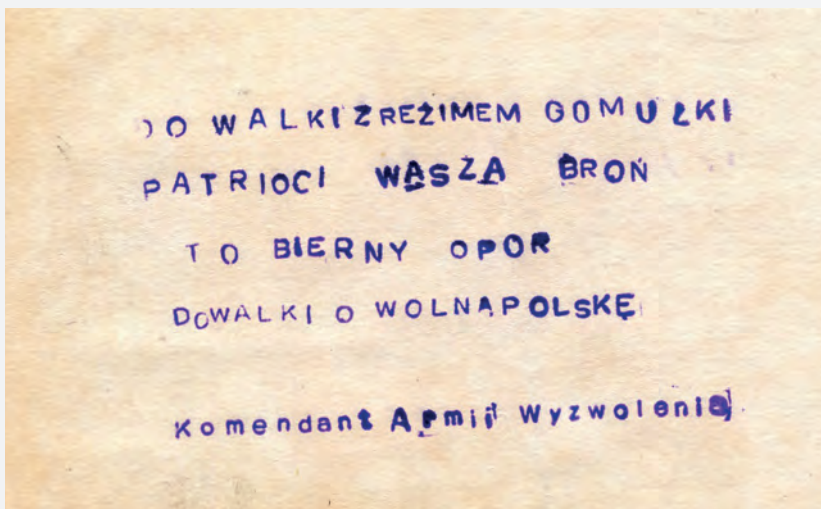 DO WALKI Z REŻIMEM GOMUŁKI
PATRIOCI WASZA BROŃ
TO BIERNY OPOR
DO WALKI O WOLNĄ POLSKĘ
Komendant Armii Wyzwolenia